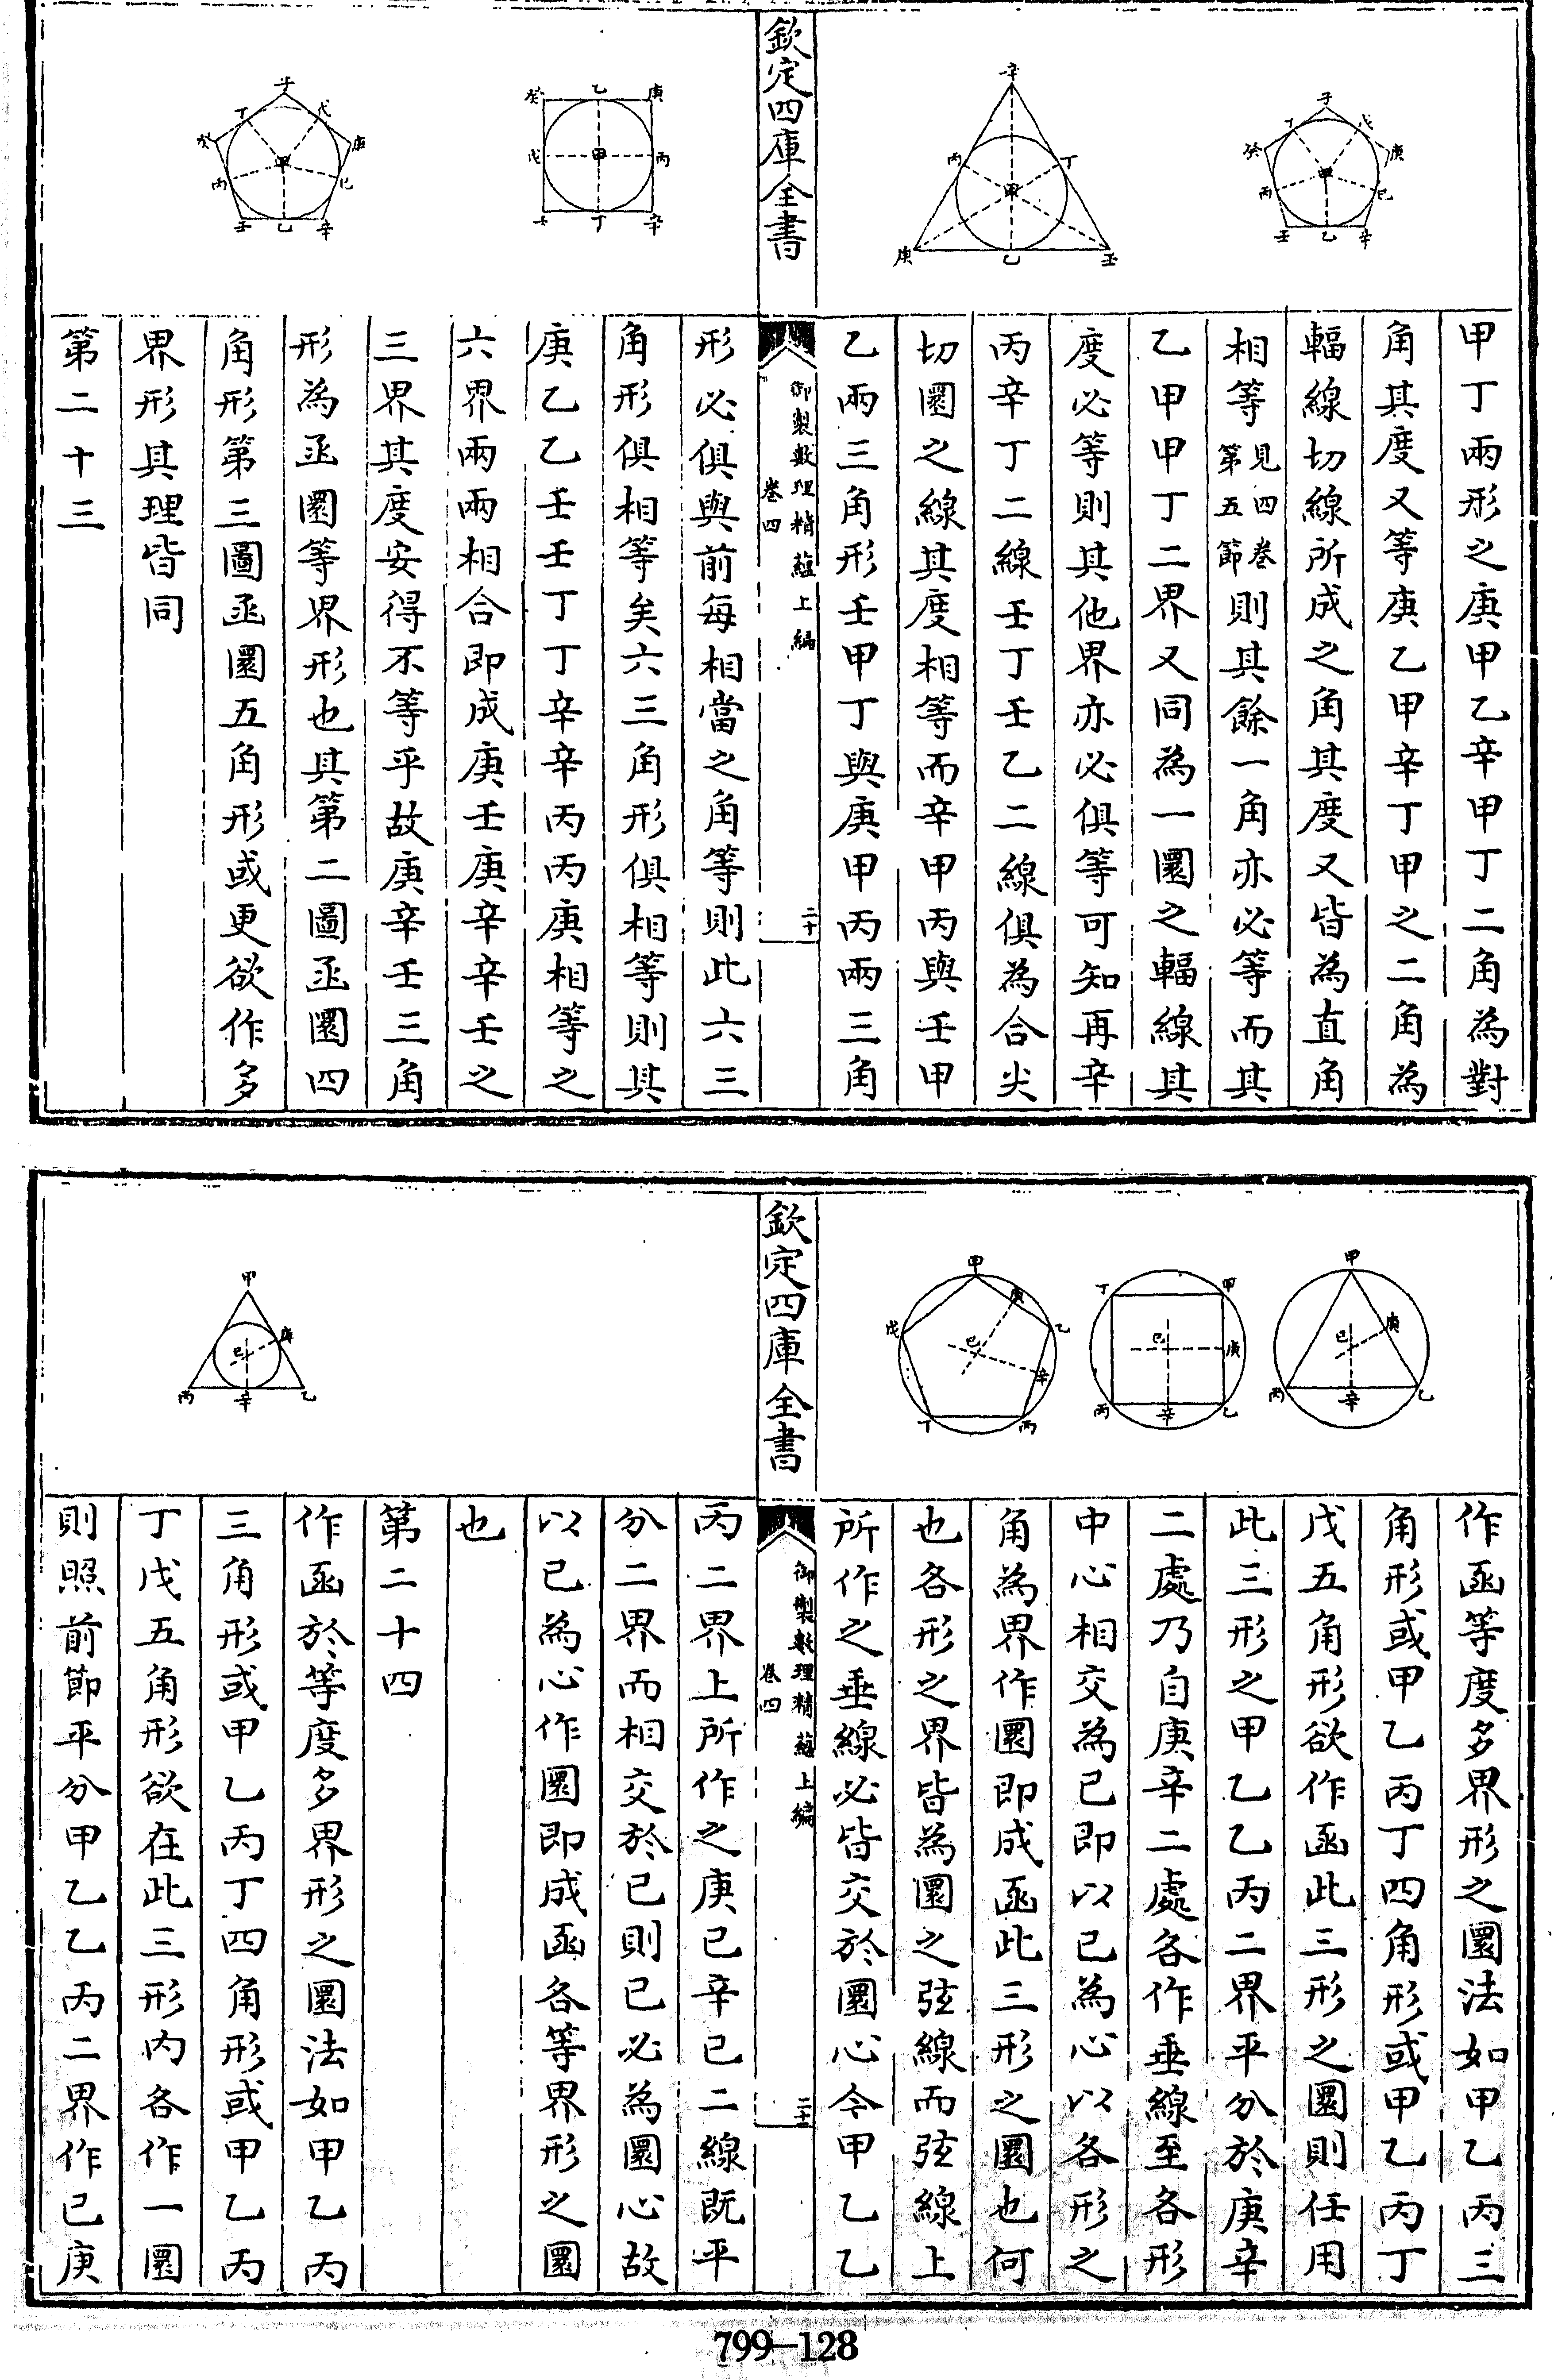 甲丁兩形之庚甲乙辛甲丁二角為對
角其度又等庚乙甲辛丁甲之二角為
輻線切線所成之角其度又皆為直角
相等見四卷第五節則其餘一角亦必等而其
乙甲甲丁二界又同為一圜之輻線其
度必等則其他界亦必俱等可知再辛
丙辛丁二線壬丁壬乙二線俱為合尖
切圜之線其度相等而辛甲丙與壬甲
乙兩三角形壬甲丁與庚甲丙兩三角
欽定四庫全書
御製數理精蘊上編
卷四
二十
形必俱與前每相當之角等則此六三
角形俱相等矣六三角形俱相等則其
庚乙乙壬壬丁丁辛辛丙丙庚相等之
六界兩兩相合即成庚壬庚辛辛壬之
三界其度安得不等乎故庚辛壬三角
形為函圜等界形也其第二圖函圜四
角形第三圖函圜五角形或更欲作多
界形其理皆同
第二十三
辛
丙
丁
甲
庚
乙
壬
子
丁
戊
癸
庚
甲
丙
己
壬
乙
辛
癸
乙
庚
戊
甲
丙
壬
丁
辛
子
丁
戊
癸
庚
甲
丙
己
壬
乙
辛
作函等度多界形之圜法如甲乙丙三
角形或甲乙丙丁四角形或甲乙丙丁
戊五角形欲作函此三形之圜則任用
此三形之甲乙乙丙二界平分於庚辛
二處乃自庚辛二處各作垂線至各形
中心相交為己即以己為心以各形之
角為界作圜即成函此三形之圜也何
也各形之界皆為圜之弦線而弦線上
所作之垂線必皆交於圜心今甲乙乙
欽定四庫全書
御製數理精蘊上編
卷四
二十一
丙二界上所作之庚己辛己二線既平
分二界而相交於己則己必為圜心故
以己為心作圜即成函各等界形之圜
也
第二十四
作函於等度多界形之圜法如甲乙丙
三角形或甲乙丙丁四角形或甲乙丙
丁戊五角形欲在此三形內各作一圜
則照前節平分甲乙乙丙二界作己庚
甲
己
庚
丙
辛
乙
丁
甲
己
庚
丙
辛
乙
甲
庚
戊
乙
己
辛
丁
丙
甲
庚
己
丙
辛
乙
799-128